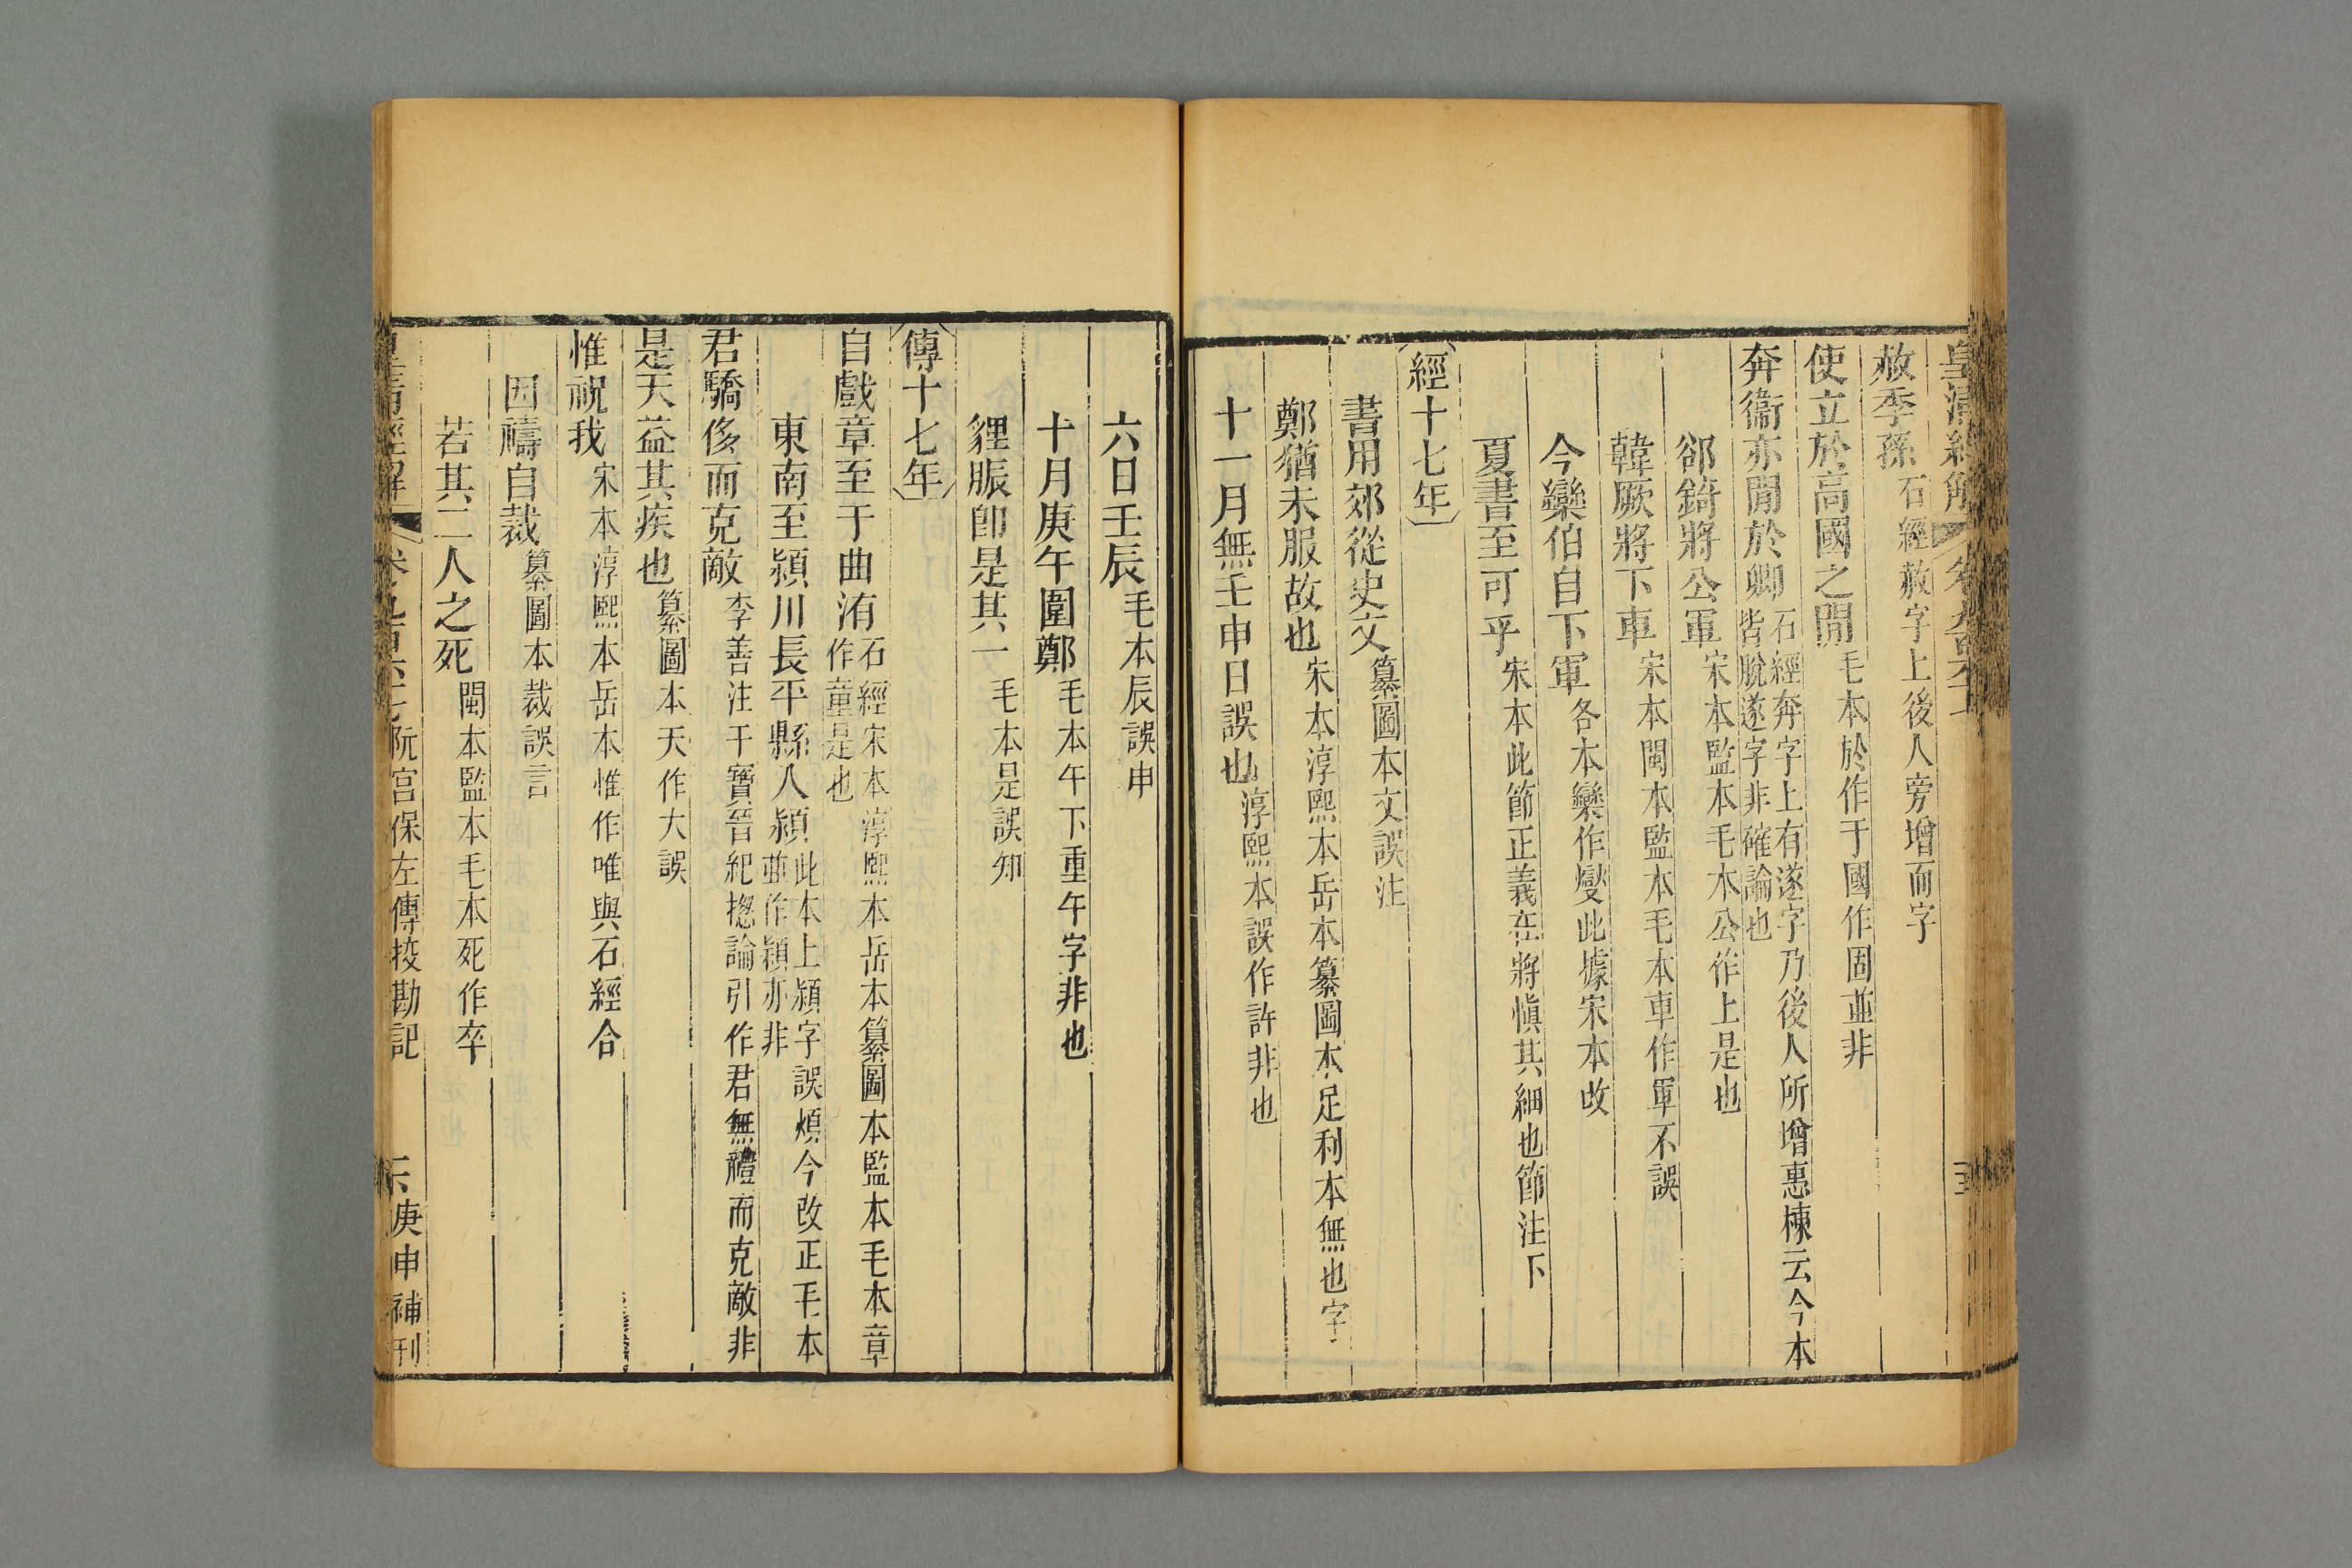 皇清經解 卷九百
赦季孫石經赦字上後人旁增而字
使立於高國之閒毛本於作于國作固並非
奔衞亦閒於卿石經奔字上有遂字乃後人所增惠棟云今本
皆脫遂字非確論也
郤錡將公軍宋本監本毛本公作上是也
韓厥將下車宋本閩本監本毛本車作軍不誤
今欒伯自下軍各本欒作燮此據宋本改
夏書至可乎宋本此節正義在將愼其細也節注下
經十七年
書用郊從史文纂圖本文誤注
鄭猶未服故也宋本淳熙本岳本纂圖本足利本無也字
十一月無壬申日誤也淳熙本誤作許非也
六日壬辰毛本辰誤申
十月庚午圍鄭毛本午下重午字非也
貍脤卽是其一毛本是誤知
傳十七年
自戲章至于曲洧石經宋本淳熙本岳本纂圖本監本毛本章
作童是也
東南至潁川長平縣入潁此本上潁字誤煩今改正毛本
並作穎亦非
君驕侈而克敵李善注干寶晉紀揔論引作君無禮而克敵非
是天益其疾也纂圖本天作大誤
惟祝我宋本淳熙本岳本惟作唯與石經合
因禱自裁纂圖本裁誤言
若其二人之死閩本監本毛本死作卒
皇清經解 阮宮保左傳挍勘記 庚申補刊